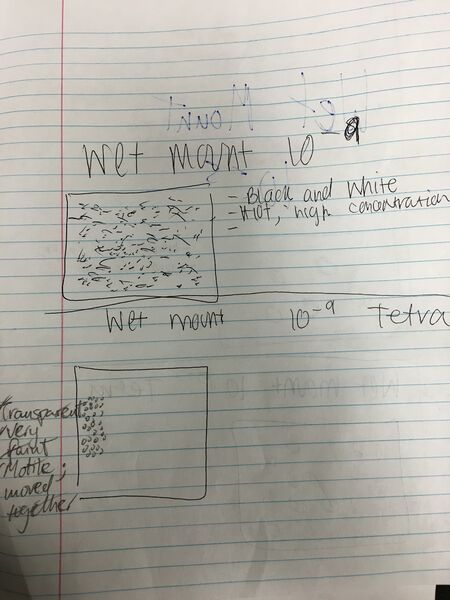 Wet mount 10^-9
- Black and White
- high concentration
-
Wet mount 10^-9 Tetra
transparent
very
faint
Motile;
moved
together